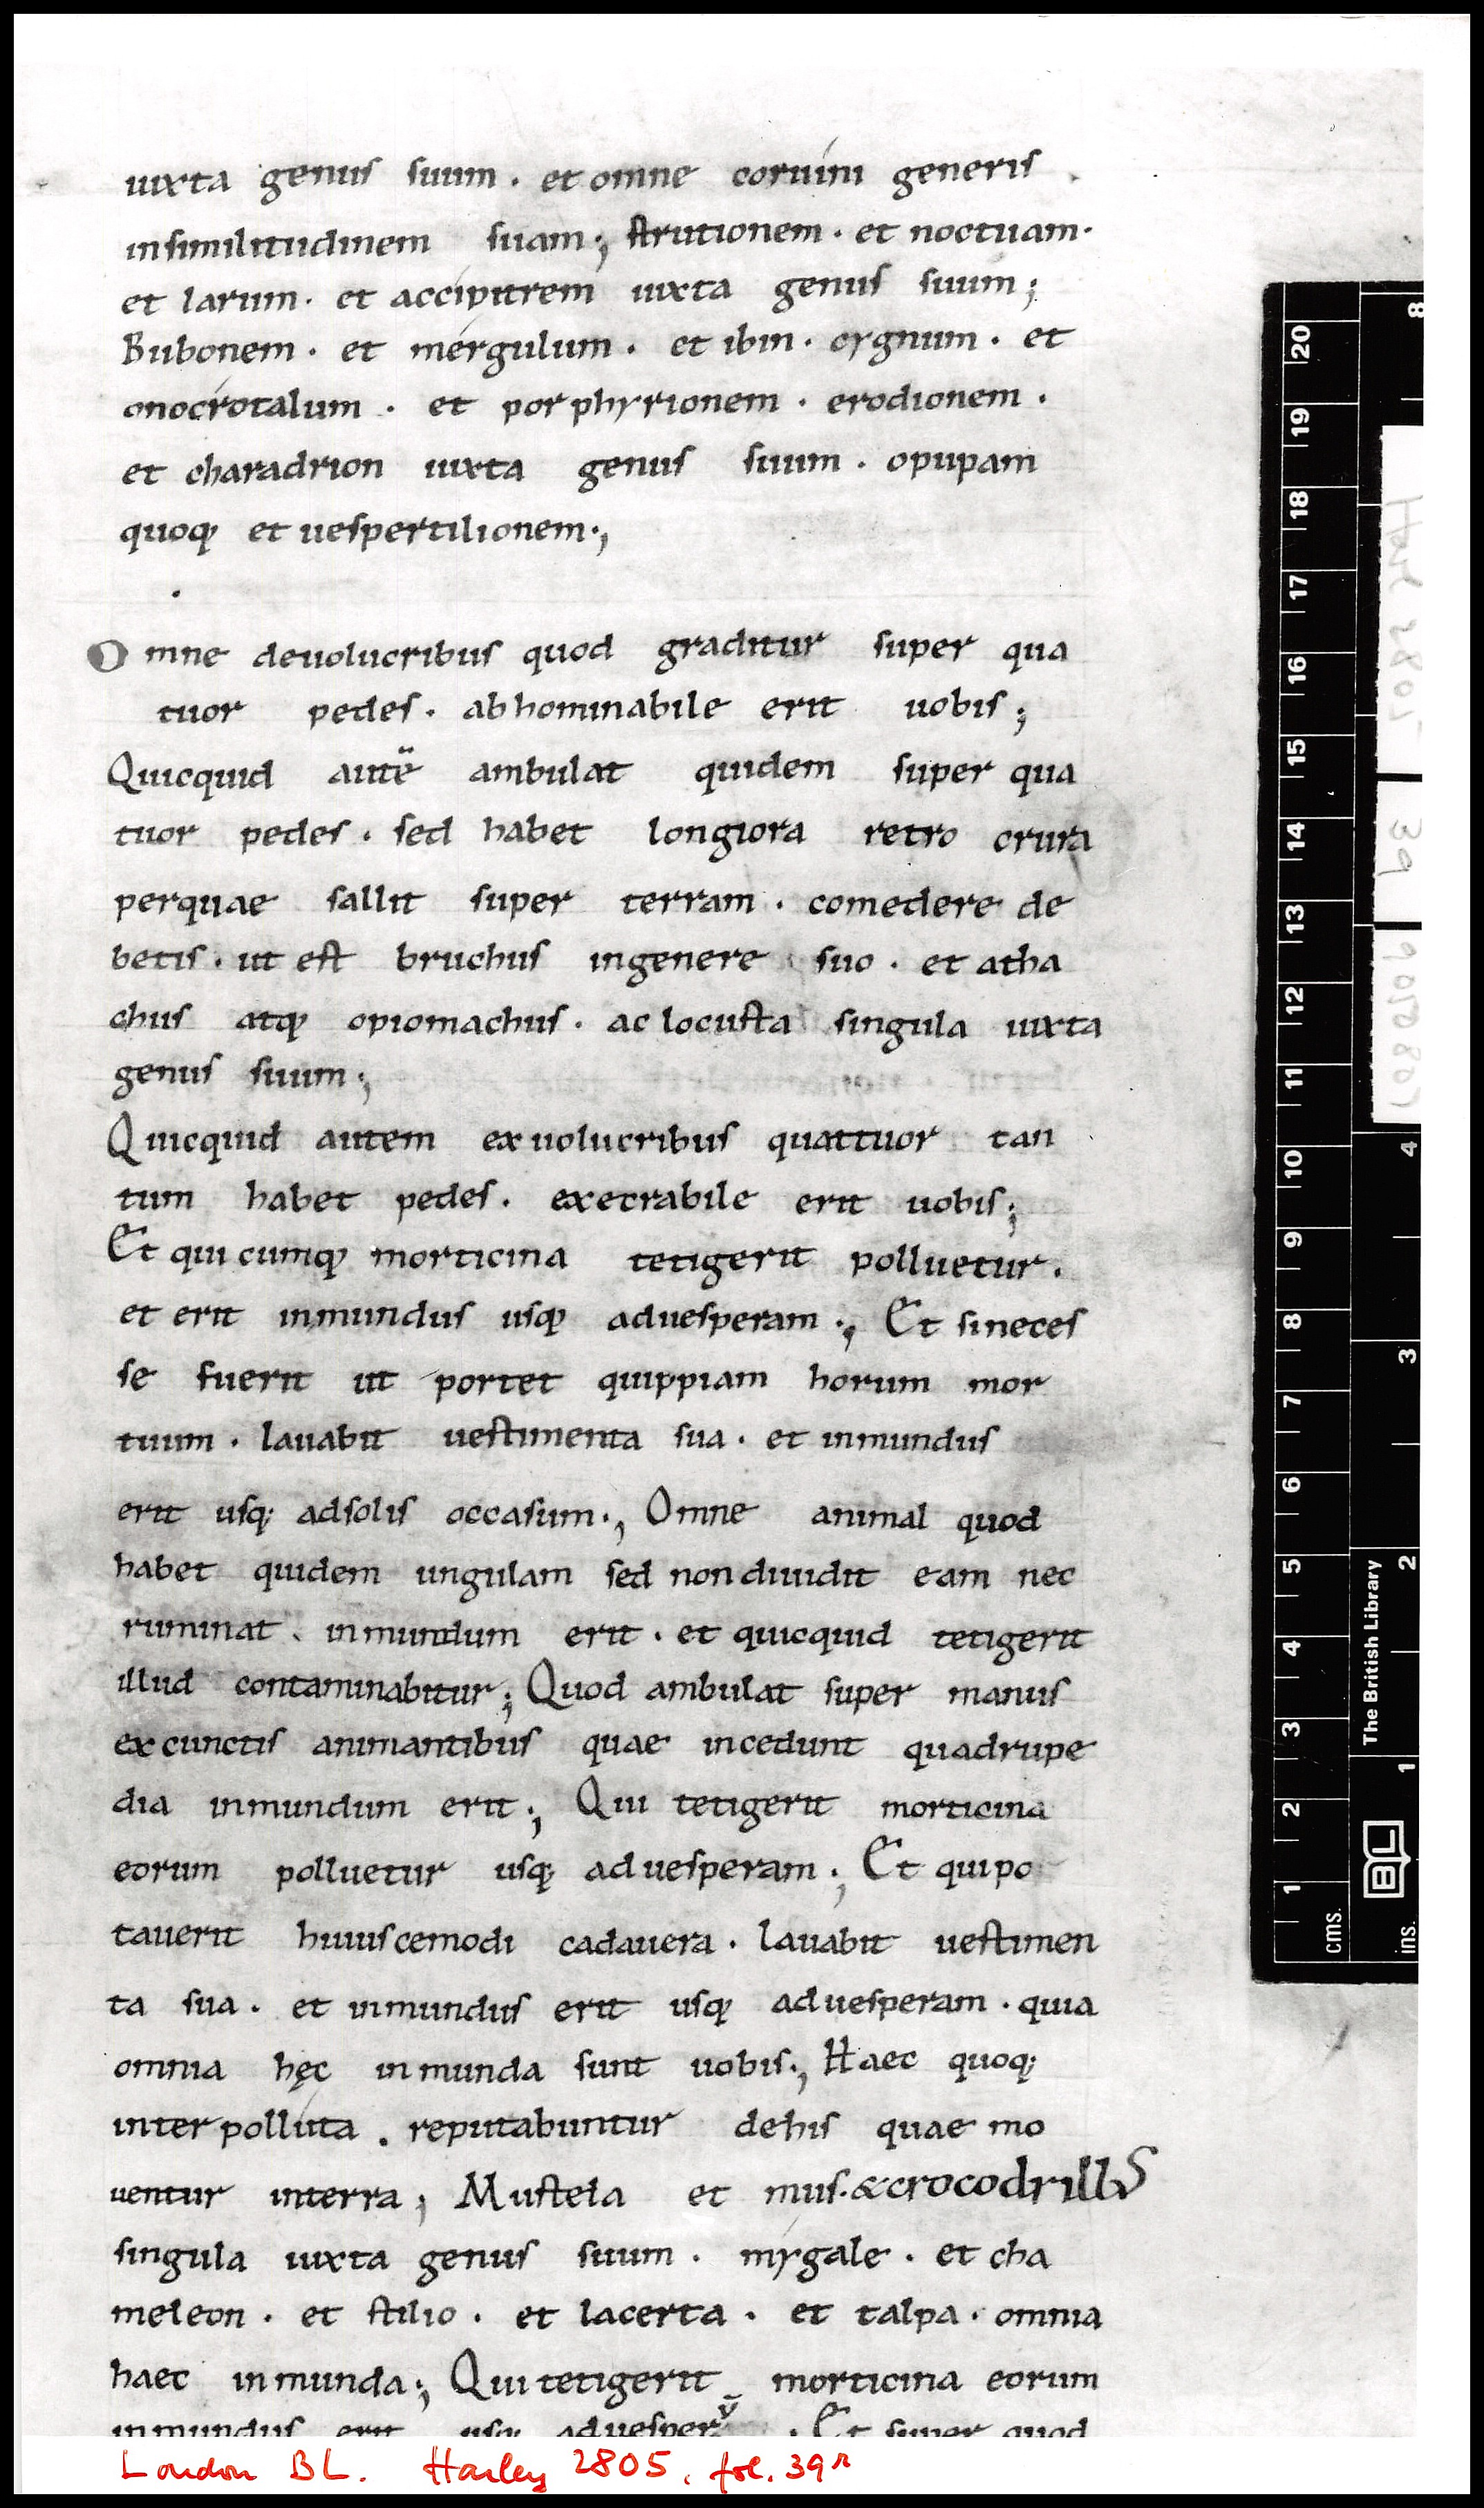 iuxta genus suum · et omne coruini generis
insimilitudinem suam ·, strutionem · et noctuam ·
et larum · et accipitrem iuxta genus suum ;
Bubonem · et mergulum · et ibin · cygnum · et
onocrotalum · et porphyrionem · erodionem ·
et charadrion iuxta genus suum · opupam
quoq; et uespertilionem ·,
Omne deuolucribus quod graditur super qua
tuor pedes · abhominabile erit uobis ;
Quicquid autē ambulat quidem super qua
tuor pedes · sed habet longiora retro crura
perquae sallit super terram · comedere de
betis · ut est bruchus ingenere suo · et atha
chus atq; opiomachus · ac locusta singula iuxta
genus suum ·,
Quicquid autem exuolucribus quattuor tan
tum habet pedes · execrabile erit uobis ;
Et qui cumq; morticina tetigerit polluetur ·
et erit inmundus usq; aduesperam ·, Et sineces
se fuerit ut portet quippiam horum mor
tuum · lauabit uestimenta sua · et inmundus
erit usq; adsolis occasum ·, Omne animal quod
habet quidem ungulam sed non diuidit eam nec
ruminat · inmundum erit · et quicquid tetigerit
illud contaminabitur ; Quod ambulat super manus
ex cunctis animantibus quae incedunt quadrupe
dia inmundum erit ·, Qui tetigerit morticina
eorum polluetur usq; ad uesperam ·, Et qui po
tauerit huiuscemodi cadauera · lauabit uestimen
ta sua · et inmundus erit usq; ad uesperam · quia
omnia hęc inmunda sunt uobis ·, Haec quoq;
inter polluta · reputabuntur dehis quae mo
uentur interra ; Mustela et mus · & crocodrillus
singula iuxta genus suum · mygale · et cha
meleon · et stilio · et lacerta · et talpa · omnia
haec inmunda ·, Qui tetigerit morticina eorum
inmundus erit usq; aduesper · Et super quod
London BL. Harley 2805, fol. 39r
20
19
18
17
16
15
14
13
12
11
10
9
8
7
6
5
4
3
2
1
cms.
8
4
3
2
1
ins.
The British Library
BL
Harl 2805
39